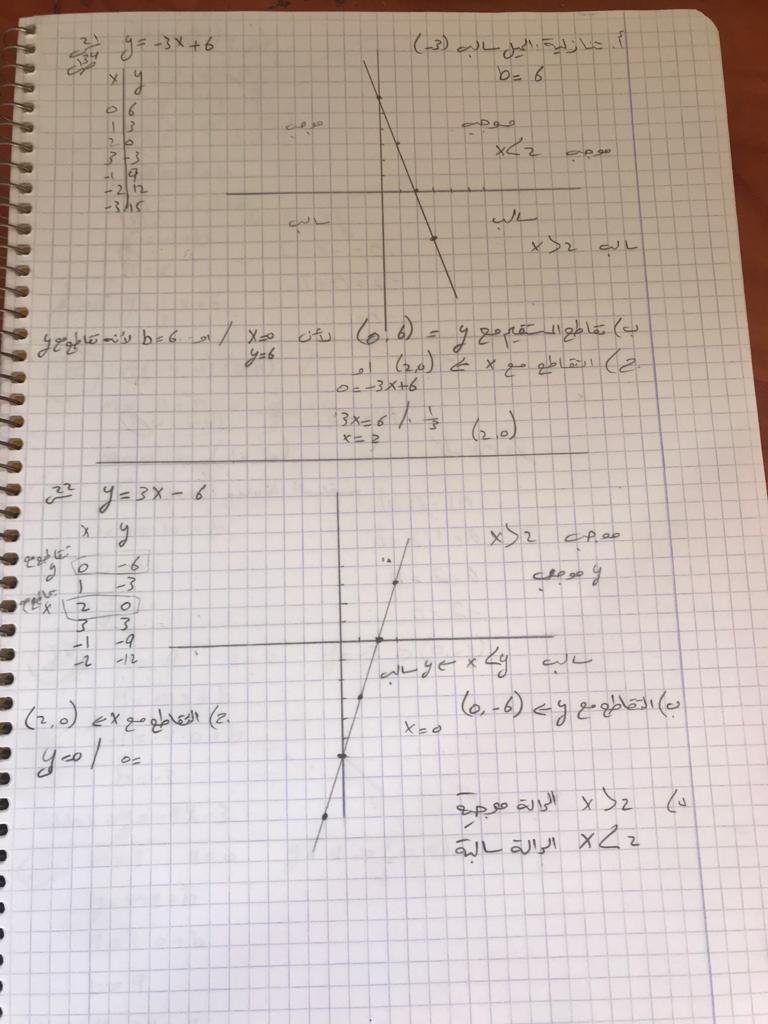 21
134
y = -3x + 6
أ. تنازلية، الميل سالب (-3)
b = 6
x y
0 6
1 3
2 0
3 -3
-1 9
-2 12
-3 15
موجب
موجب
موجب x < 2
سالب
سالب
سالب x > 2
ب) تقاطع المستقيم مع y = (0, 6) لأن x=0 / او b = 6 لأنه تقاطع مع y
y=6
ج) التقاطع مع x ⇐ (2,0) او
0 = -3x + 6
3x = 6 / · 1/3
x = 2 (2,0)
22
y = 3x - 6
x y
تقاطع مع y 0 -6
1 -3
تقاطع مع x 2 0
3 3
-1 -9
-2 -12
موجب x > 2
y موجب
سالب x < y ⇐ y سالب
ب) التقاطع مع y ⇐ (0, -6)
x = 0
ج) التقاطع مع x ⇐ (2,0)
y = 0 / 0 =
د) x > 2 الدالة موجبة
x < 2 الدالة سالبة